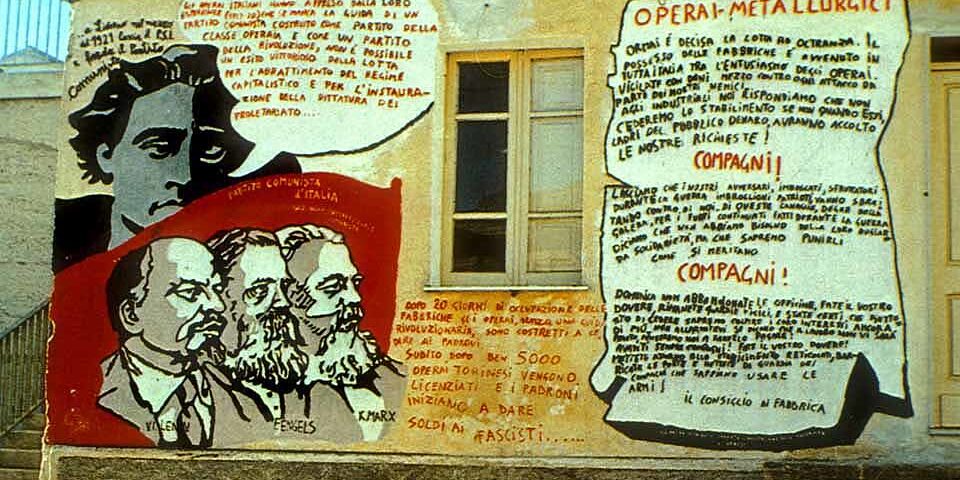 nel 1921 lascia il P.S.I.
e fonda il Partito
Comunista
GLI OPERAI ITALIANI HANNO APPRESO DALLA LORO
ESPERIENZA CHE SE MANCA LA GUIDA DI UN
PARTITO COMUNISTA COSTRUITO COME PARTITO DELLA
CLASSE OPERAIA E COME UN PARTITO
DELLA RIVOLUZIONE, NON È POSSIBILE
UN ESITO VITTORIOSO DELLA LOTTA
PER L'ABBATTIMENTO DEL REGIME
CAPITALISTICO E PER L'INSTAURA-
ZIONE DELLA DITTATURA DEL
PROLETARIATO....
PARTITO COMUNISTA
D'ITALIA
V.I. LENIN
F. ENGELS
K. MARX
DOPO 20 GIORNI DI OCCUPAZIONE DELLE
FABBRICHE GLI OPERAI, SENZA UNA GUIDA
RIVOLUZIONARIA, SONO COSTRETTI A CE
DERE AI PADRONI
SUBITO DOPO BEN 5000
OPERAI TORINESI VENGONO
LICENZIATI E I PADRONI
INIZIANO A DARE
SOLDI AI FASCISTI......
OPERAI-METALLURGICI
ORMAI È DECISA LA LOTTA AD OLTRANZA. IL
POSSESSO DELLE FABBRICHE È AVVENUTO IN
TUTTA ITALIA TRA L'ENTUSIASMO DEGLI OPERAI.
VIGILATE CON OGNI MEZZO CONTRO OGNI ATTACCO DA
PARTE DEI NOSTRI NEMICI.
AGLI INDUSTRIALI NOI RISPONDIAMO CHE NON
CEDEREMO LO STABILIMENTO SE NON QUANDO ESSI,
LADRI DEL PUBBLICO DENARO, AVRANNO ACCOLTO
LE NOSTRE RICHIESTE!
COMPAGNI!
CHE I NOSTRI AVVERSARI, IMBOSCATI, SFRUTTATORI
DURANTE LA GUERRA IMBROGLIONI PATRIOTI, VANNO SBRAI-
TANDO CONTRO DI NOI. DI QUESTE CANAGLIE, DEGNE DELLA
GALERA, PER I FURTI CONTINUATI FATTI DURANTE LA GUERRA,
DICIAMO CHE NON ABBIAMO BISOGNO DELLA LORO
DA SOLIDARIETÀ, MA CHE SAPREMO PUNIRLI
COME SI MERITANO
COMPAGNI!
DOMENICA NON ABBANDONATE LE OFFICINE, FATE IL VOSTRO
DOVERE,
FATE IL VOSTRO DOVERE!
COMPAGNI CHE SAPPIANO USARE LE
ARMI!
IL CONSIGLIO DI FABBRICA